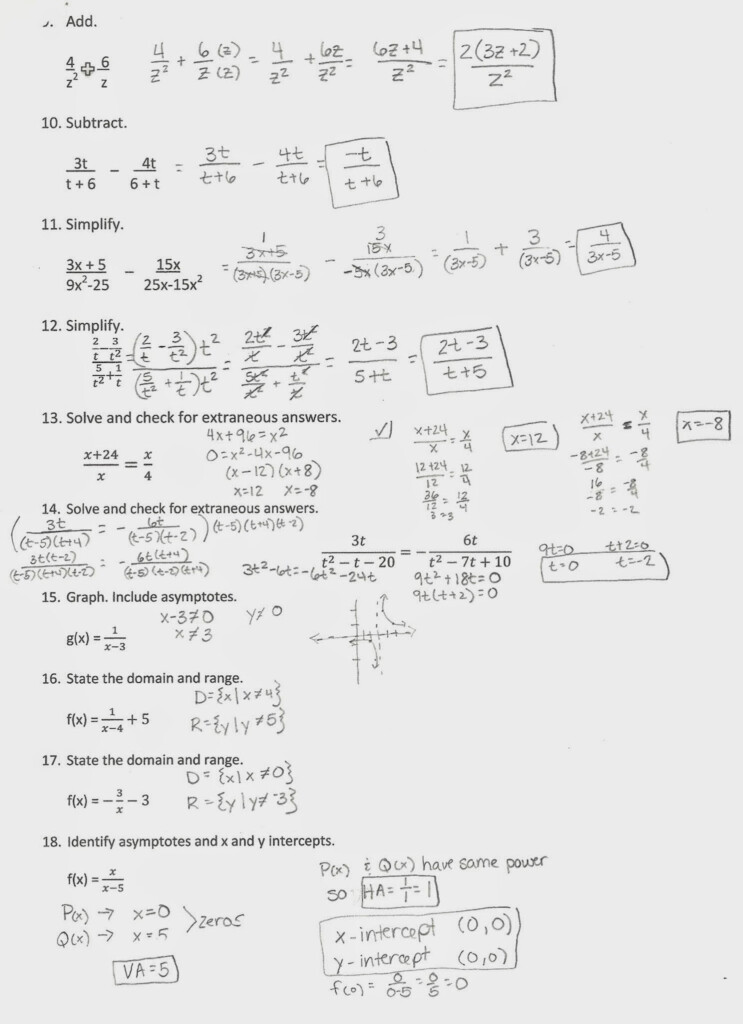 . Add.
4/z² + 6/z   4/z² + 6(z)/z(z) = 4/z² + 6z/z² = 6z+4/z² = 2(3z+2)/z²
10. Subtract.
3t/t+6 − 4t/6+t = 3t/t+6 − 4t/t+6 = −t/t+6
11. Simplify.
3x+5/9x²-25 − 15x/25x-15x² = 1 3x+5/(3x+5)(3x-5) − 3 15x/-5x(3x-5) = 1/(3x-5) + 3/(3x-5) = 4/3x-5
12. Simplify.
2/t − 3/t² / 5/t² + 1/t = (2/t − 3/t²)t² / (5/t² + 1/t)t² = 2t²/t − 3t²/t² / 5t²/t² + t²/t = 2t-3/5+t = 2t-3/t+5
13. Solve and check for extraneous answers.
x+24/x = x/4
4x+96=x²
0=x²-4x-96
(x-12)(x+8)
x=12 x=-8
✓ x+24/x = x/4   x=12
12+24/12 = 12/4
36/12 = 12/4
3=3
x+24/x = x/4   x=-8
-8+24/-8 = -8/4
16/-8 = -8/4
-2 = -2
14. Solve and check for extraneous answers.
(3t/(t-5)(t+4) = − 6t/(t-5)(t-2)) (t-5)(t+4)(t-2)
3t/t²−t−20 = − 6t/t²−7t+10
3t(t-2)/(t-5)(t+4)(t-2) = − 6t(t+4)/(t-5)(t-2)(t+4)
3t²-6t=-6t²-24t
9t²+18t=0
9t(t+2)=0
9t=0 t+2=0
t=0 t=-2
15. Graph. Include asymptotes.
g(x) = 1/x−3
x-3≠0 y≠0
x≠3
16. State the domain and range.
D={x|x≠4}
f(x) = 1/x−4 + 5   R={y|y≠5}
17. State the domain and range.
D={x|x≠0}
f(x) = − 3/x − 3   R={y|y≠-3}
18. Identify asymptotes and x and y intercepts.
f(x) = x/x−5
P(x) → x=0
Q(x) → x=5 > zeros
VA=5
P(x) & Q(x) have same power
so HA= 1/1 = 1
x-intercept (0,0)
y-intercept (0,0)
f(0) = 0/0-5 = 0/5 = 0